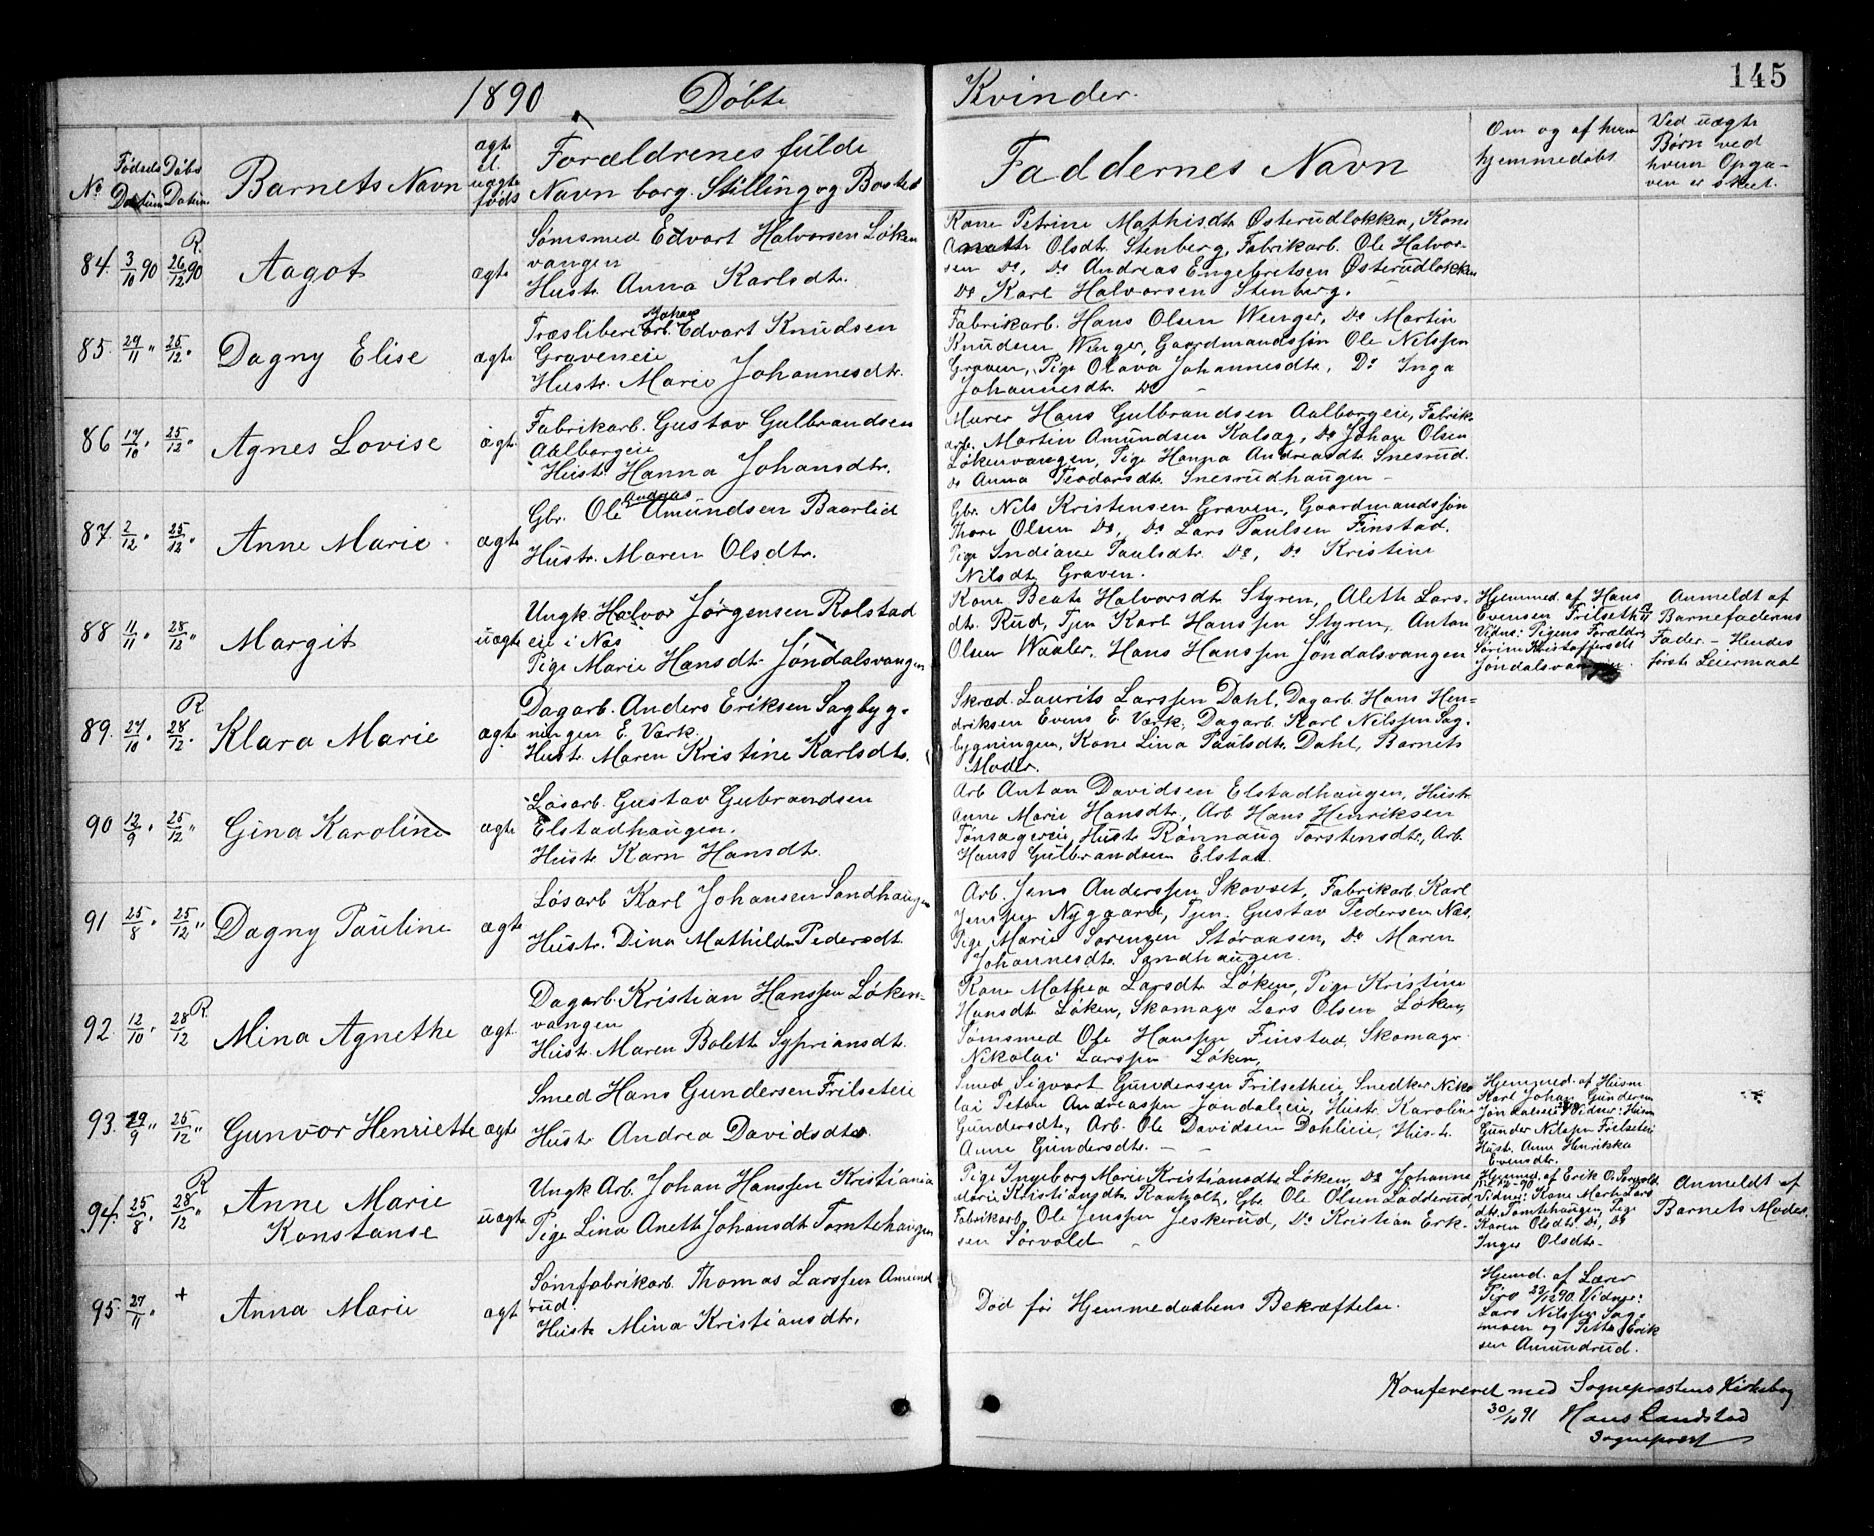 145
1890 Døbte Kvinder.
No Fødsels Datum Døbs Datum Barnets Navn ægte el. uægte føds Forældrenes fulde Navn borg. Stilling og Bosted Faddernes Navn Om og af hvem hjemmedøbt Ved uægte Børn ved hvem Opgaven er skeet.
84. 3/10 90 R. 26/12 90 Aagot ægte
Sømsmed Edvart Halvorsen Løken
vangen
Hustr. Anna Karlsdtr.
Kone Petrine Mathisdtr Østerudløkken, Kone
Olsdtr. Stenberg, Fabrikarb. Ole Halvor-
sen Do, Do Andreas Engebretsen Østerudløkken
Do Karl Halvorsen Stenberg.
85. 29/11 " 25/12 " Dagny Elise ægte
Træsliberiarb. Johan Edvart Knudsen
Graveneie
Hustr. Marie Johannesdtr.
Fabrikarb. Hans Olsen Wenger, Do Martin
Knudsen Wenger, Gaardmandssøn Ole Nilssen
Graven, Pige Olava Johannesdtr, Do Inga
Johannesdtr. Do -
86 17/10 " 25/12 " Agnes Lovise ægte
Fabrikarb. Gustav Gulbrandsen
Aalborgeie
Hustr Hanna Johansdtr.
Murer Hans Gulbrandsen Aalborgeie, Fabrik-
arb. Martin Amundsen Kalsæg, Do Johan Olsen
Løkenvangen, Pige Hanna Andreasdtr Snesrud.
Do Anna Teodorsdtr. Snesrudhaugen -
87. 2/12 " 25/12 " Anne Marie ægte
Gbr. Ole Andreas Amundsen Baarlid
Hustr. Maren Olsdtr.
Gbr. Nils Kristensen Graven, Gaardmandssøn
Thore Olsen Do, Do Lars Paulsen Finstad.
Pige Indiane Paulsdtr. Do, Do Kristine
Nilsdtr Graven.
88 11/11 " 28/12 " Margit uægte
Ungk. Halvor Jørgensen Rolstad
eie i Næs
Pige Marie Hansdtr Jøndalsvangen
Kone Beate Halvorsdtr Styren, Aleth Lars-
dtr. Rud, Tjen Karl Hanssen Styren, Anton
Olsen Waaler, Hans Hanssen Jøndalsvangen
Hjemmed. af Hans
Evensen Frilseth
Vidne: Pigens Forældre
Sørine Kristoffersdt
Jøndalsvangen.
Anmeldt af
Barnefaderens
Fader. - Hendes
første Leiermaal
89. 27/10 " R. 28/12 " Klara Marie ægte
Dagarb. Anders Eriksen Sagbyg-
ningen E. Værk.
Hustr. Maren Kristine Karlsdtr.
Skræd. Laurits Larssen Dahl, Dagarb. Hans Hen-
driksen Evens E. Værk, Dagarb. Karl Nilssen Sag-
bygningen, Kone Lina Paulsdtr. Dahl, Barnets
Moder.
90 12/9 " 25/12 " Gina Karoline ægte
Løsarb. Gustav Gubrandsen
Elstadhaugen.
Hustr Karn Hansdtr.
Arb Anton Davidsen Elstadhaugen, Hustr.
Anne Marie Hansdtr, Arb Hans Henriksen
Tønsagereie, Hustr Rønnaug Torstensdtr, Arb.
Hans Gulbrandsen Elstad.
91 25/8 " 25/12 " Dagny Pauline ægte
Løsarb Karl Johansen Sandhaugen
Hustr. Dina Mathilde Pedersdt.
Arb. Jens Anderssen Skovset, Fabrikarb Karl
Jenssen Nygaard, Tjen. Gustav Pedersen Næs,
Pige Marie Sørensen Støraasen, Do Maren
Johannesdtr. Sandhaugen.
92. 12/10 " R. 28/12 Mina Agnethe ægt.
Dagarb. Kristian Hanssen Løken-
vangen
Hustr. Maren Bolette Sypriansdt.
Kone Mathea Larsdtr Løken, Pige Kristine
Hansdtr Løken, Skomager Lars Olsen Løken,
Sømsmed Ole Hanssen Finstad, Skomager
Nikolai Larssen Løken,
93. 29/9 " 25/12 " Gunvor Henriette ægte
Smed Hans Gundersen Frilseteie
Hustr Andrea Davidsdtr.
Smed Sigvart Gundersen Frilsetheie, Snedker Niko
lai Peter Andreassen Jøndalseie, Hustr. Karoline
Gundersdtr, Arb. Ole Davidsen Dahleie, Hustr.
Anne Gundersdtr. - -
Hjemmed. af Husm
Karl Johan Gundersen
Jøndalseie Vidner: Husm
Gunder Nilssen Frilseteie
Hustr. Anne Henrikka
Evensdtr.
94. 25/8 " R. 28/12 " Anne Marie Konstanse uægte
Ungk Arb. Johan Hanssen Kristiania
Pige Lina Anette Johansdtr Tomtehaugen
Pige Ingeborg Marie Kristiansdtr Løken, Do Johanne
Marie Kristiansdtr. Raaholt, Gbr Ole Olsen Ladderud,
Fabrikarb. Ole Jenssen Jeskerud, Do Kristian Erik-
sen Sørvold -
Hjemmed. af Erik O. Sørvold
Vidner: Kone Marthe Lars
dtr. Tomtehaugen, Pige
Karen Olsdtr. Do, Do
Inger Olsdtr.-
Anmeldt af
Barnets Moder.
95. 27/11 " + Anna Marie ægt
Sømfabrikarb. Thomas Larssen Amund
rud.
Hustr Mina Kristiansdtr.
Død før Hjemmedaabens Bekræftelse.
Hjemd. af Lærer
Piro 29/12 90. Vidner:
Lars Nilssen Sag-
moen og Petter Erik
sen Amundrud.
Konfereret med Sogneprestens Kirkebog
30/10 91 Hans Landstad
Sogneprest